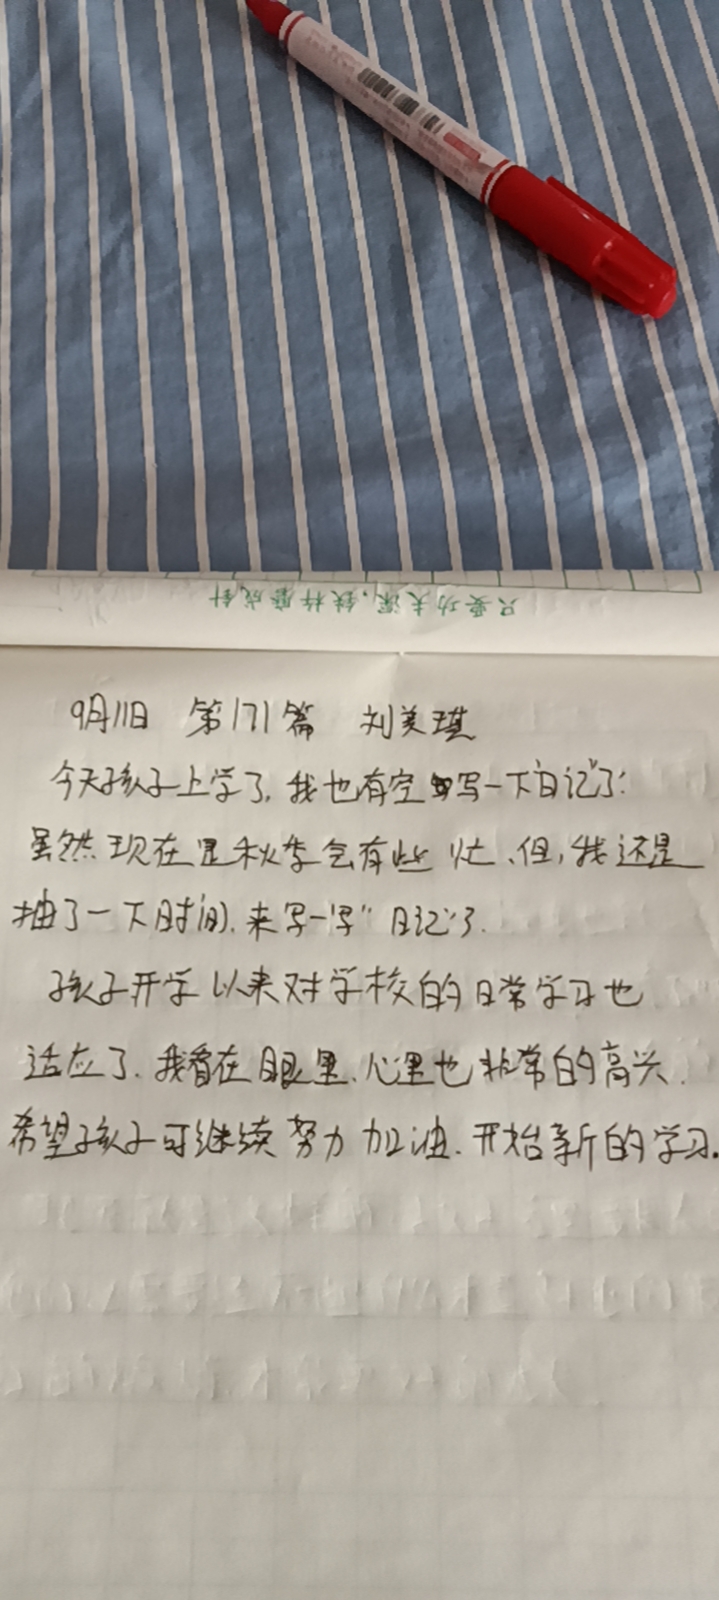 只要功夫深,铁杵磨成针
9月11日 第171篇 刘美琪
今天孩子上学了,我也有空写一下"日记"了:
虽然现在是秋季会有些忙、但,我还是
抽了一下时间、来写一写"日记"了.
孩子开学以来对学校的日常学习也
适应了、我看在眼里、心里也非常的高兴.
希望孩子可继续努力加油、开始新的学习.